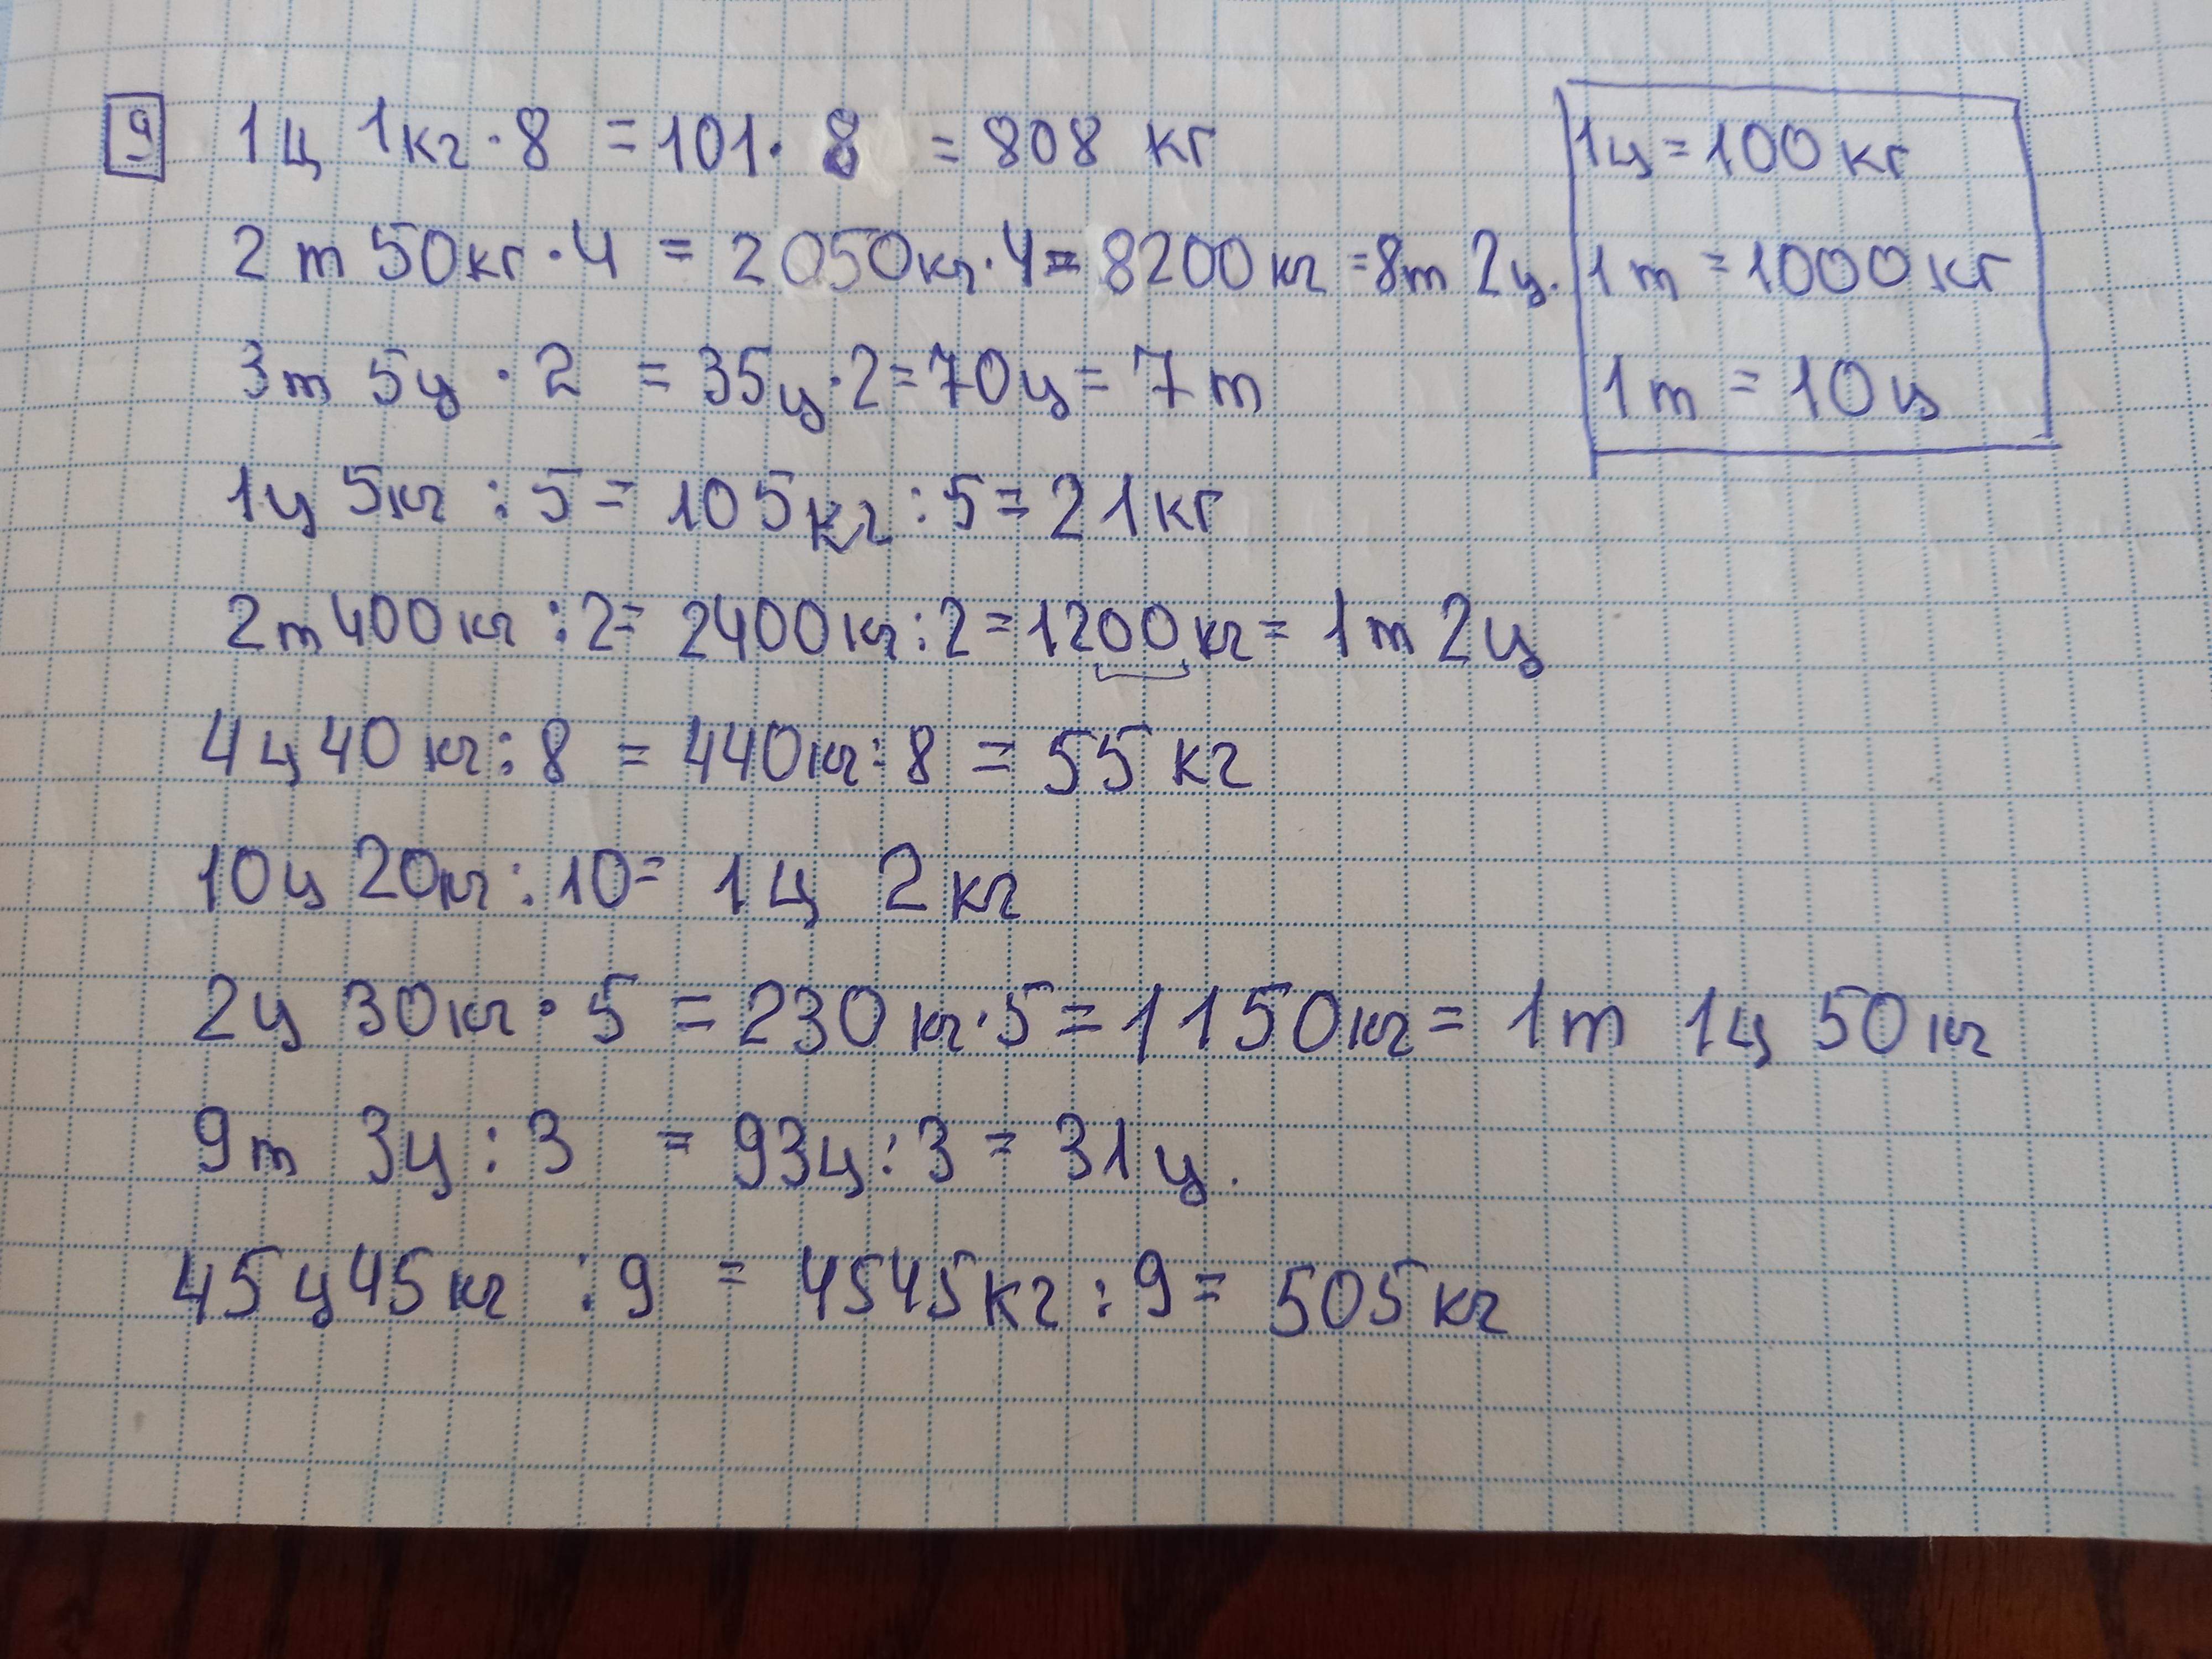 9 1ц 1кг · 8 = 101 · 8 = 808 кг
2т 50кг · 4 = 2050кг · 4 = 8200кг = 8т 2ц.
3т 5ц · 2 = 35ц · 2 = 70ц = 7т
1ц 5кг : 5 = 105кг : 5 = 21кг
2т 400кг : 2 = 2400кг : 2 = 1200кг = 1т 2ц
4ц 40кг : 8 = 440кг : 8 = 55кг
10ц 20кг : 10 = 1ц 2кг
2ц 30кг · 5 = 230кг · 5 = 1150кг = 1т 1ц 50кг
9т 3ц : 3 = 93ц : 3 = 31ц.
45ц 45кг : 9 = 4545кг : 9 = 505кг
1ц = 100кг
1т = 1000кг
1т = 10ц